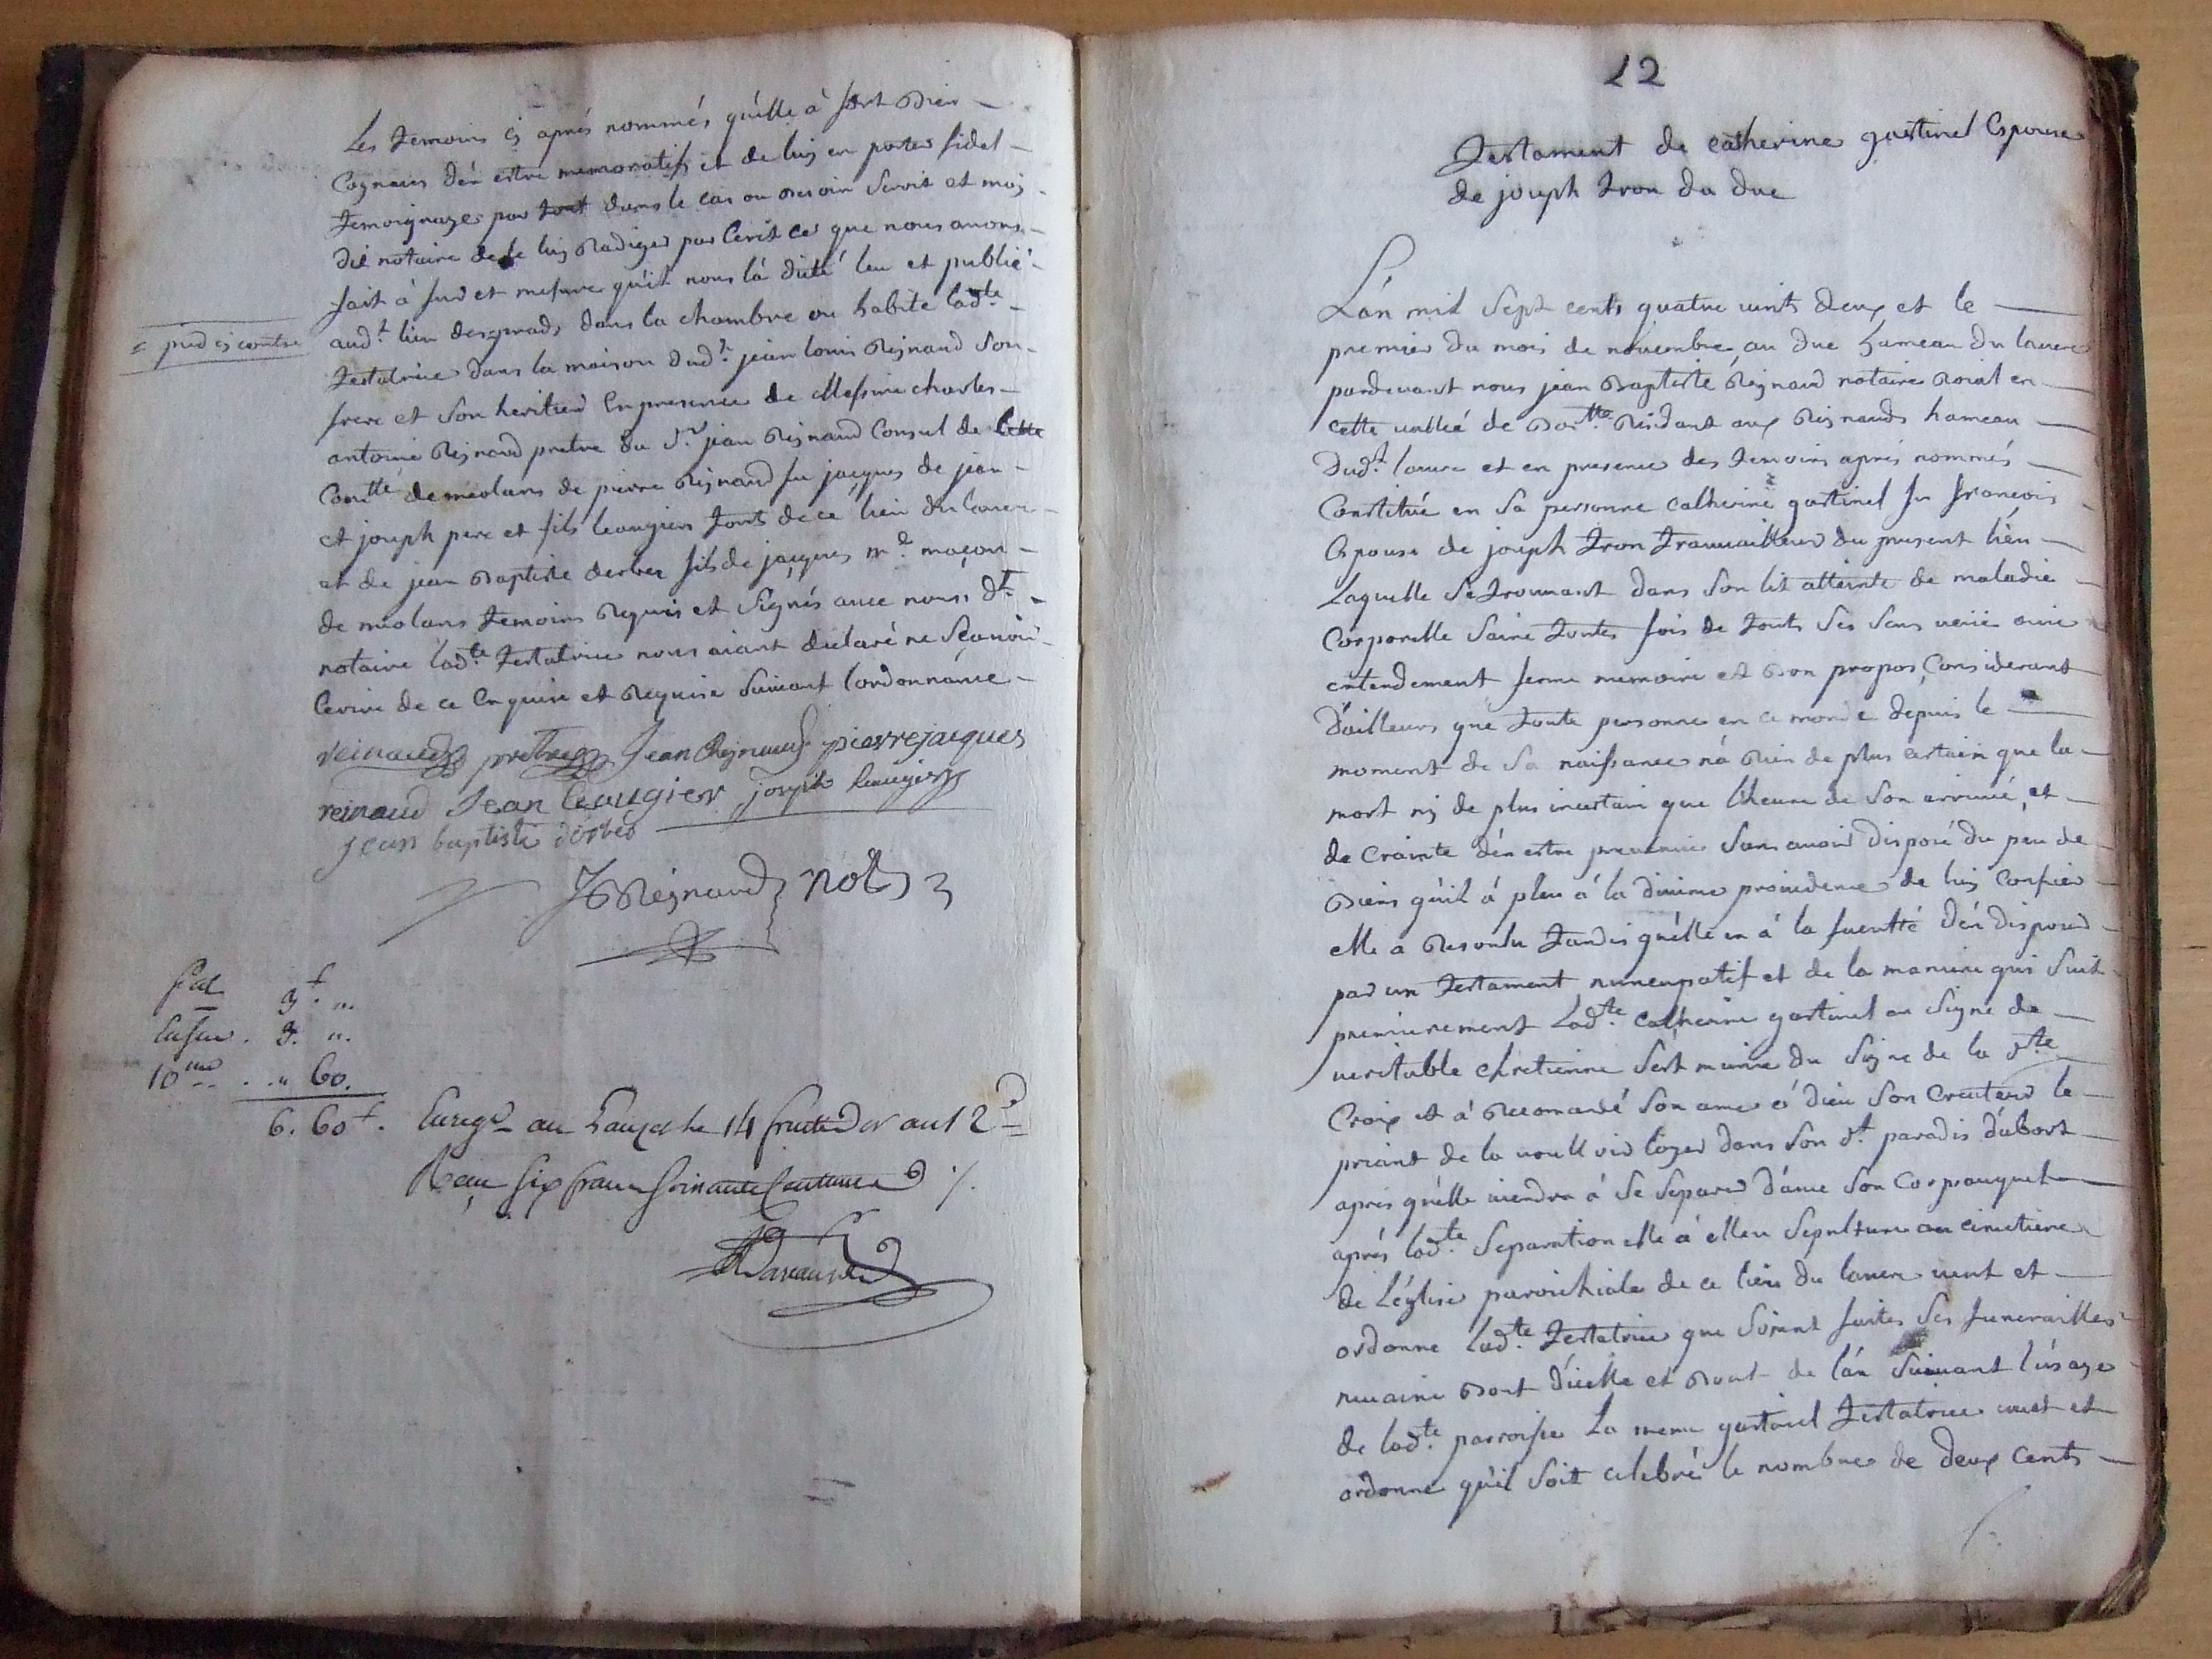 Les temoins cy aprés nommés qu'elle à fort bien
Cognus d'en estre memoratifs et de luy en porter fidel
temoignage par tout dans le cas ou besoin seroit et moy
dit notaire de le luy Rediger par Ecrit ce que nous avons
fait à fur et mesure qu'il nous l'à dicté leu et publié
aud.t lieu des prads dans la chambre ou habite lad.te
= prads cy contre
testatrice dans la maison dud.t jean louis Reynaud son
frere et son heritier En presence de Messire charles
antoine Reynaud pretre du S.r jean Reynaud Consul de Cette
Com.tté de meolans de pierre Reynaud fu jacques de jean
et joseph pere et fils leaugiers touts de ce lieu du lavere
et de jean Baptiste derbez fils de jacques m.e maçon
de meolans temoins Requis et signés avec nous d.t
notaire lad.te testatrice nous aiant declaré ne sçavoir
Ecrire de ce Enquise et Requise suivant l'ordonnance
reinaud pretre Jean Reynaud pierre jacques
reinaud Jean leaugier joseph leaugier
jean baptiste derbes
JBReynaud not
fixe 3.f "
Enfin . 3. "
10me . . " 60.
6. 60f. Enreg.é au Lauzet le 14 fructidor an 12
Reçu six francs soixante Centimes ./.
12
Testament de catherine gastinel Espouse
de joseph tron du duc
L'an mil sept cents quatre vints deux et le
premier du mois de novembre au duc hameau du lavere
pardevant nous jean Baptiste Reynaud notaire Roial en
cette vallée de Bar.tte Residant aux Reynauds hameau
dud.t lavere et en presence des temoins aprés nommés
Constitué en sa personne catherine gastinel fu françois
Espouse de joseph tron travailleur du present lieu
Laquelle se trouvant dans son lit atteinte de maladie
Corporelle saine toutes fois de touts ses sens veüe ouïe
entendement ferme memoire et bon propos, Considerant
d'ailleurs que toute personne en ce monde depuis le
moment de sa naissance n'à Rien de plus certain que la
mort ny de plus incertain que l'heure de son arrivée, et
de Crainte d'en estre prevenue sans avoir disposé du peu de
Biens qu'il à pleu à la divine providence de luy Confier
elle a Resoulu tandis qu'elle en à la faculté d'en disposer
par un testament nuncupatif et de la maniere qui suit
premierement Lad.te catherine gastinel en signe de
veritable chretienne s'est munie du signe de la s.te
Croix et à Recomandé son ame à dieu son Createur le
priant de la voulloir loger dans son s.t paradis d'abort
aprés qu'elle viendra à se separer d'avec son Corps auquel
aprés lad.te separation elle à elleu sepulture au cimetiere
de L'église paroichiale de ce lieu du lavere veut et
ordonne lad.te testatrice que soient faites ses funerailles
neuvaine bout d'icelle et bout de l'an suivant l'usage
de lad.te parroisse La meme gastinel testatrice veut et
ordonne qu'il soit celebré le nombre de deux cents